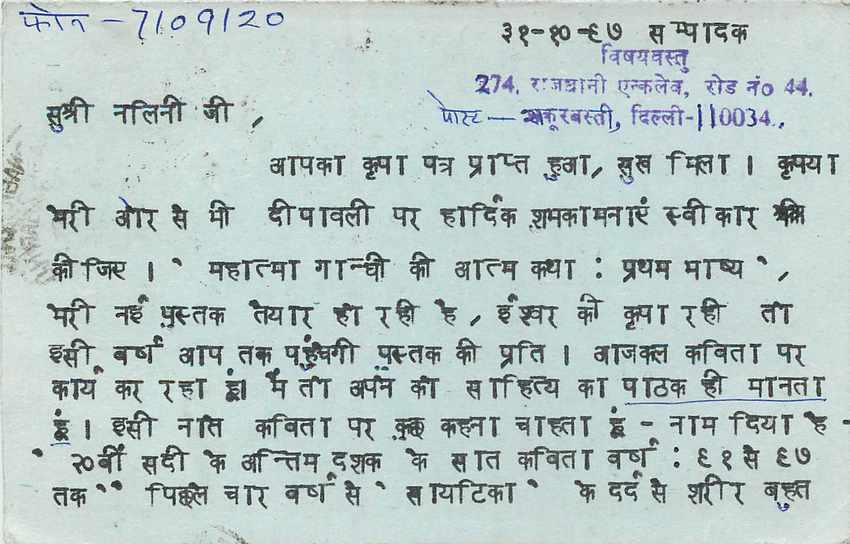 फोन - 7109120
३१-१०-६७ सम्पादक
विषयवस्तु
274, राजधानी एन्कलेव, रोड नं० 44,
सुश्री नलिनी जी ,
पोस्ट — शकूरबस्ती, दिल्ली-110034.,
आपका कृपा पत्र प्राप्त हुआ, सुख मिला । कृपया
मेरी ओर से भी दीपावली पर हार्दिक शुभकामनाएं स्वीकार
कीजिए । ` महात्मा गान्धी की आत्म कथा : प्रथम भाष्य `,
मेरी नई पुस्तक तैयार हो रही है , ईश्वर की कृपा रही तो
इसी वर्ष आप तक पहुंचेगी पुस्तक की प्रति । आजकल कविता पर
कार्य कर रहा हूं। मैं तो अपने को साहित्य का पाठक ही मानता
हूं । इसी नाते कविता पर कुछ कहना चाहता हूं - नाम दिया है -
` २०वीं सदी के अन्तिम दशक के सात कविता वर्ष : ९१ से ९७
तक`` पिछले चार वर्षों से ` सायटिका` के दर्द से शरीर बहुत